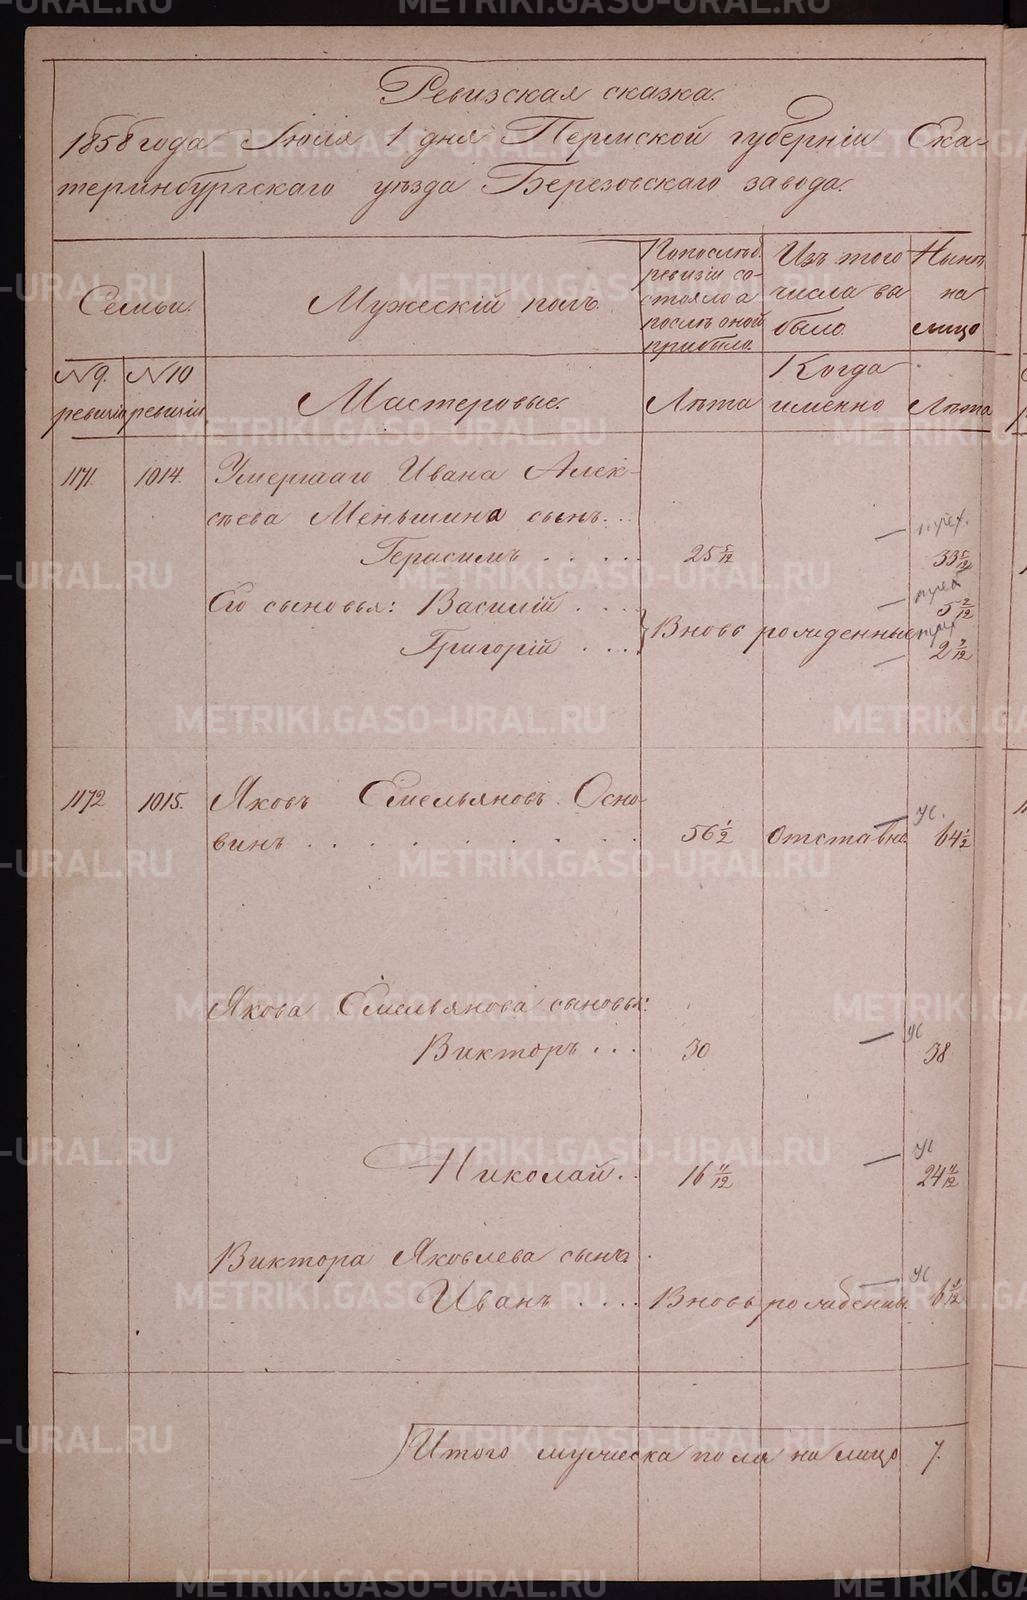 Ревизская сказка.
1858 года Іюля 1 дня Пермской губерніи Ека-
теринбургскаго уѣзда Березовскаго завода.
Семьи.
Мужескій полъ.
По послѣд.
ревизіи со-
стояло а
послѣ оной
прибыло.
Изъ того
числа вы
было.
Нынѣ
на
лицо
№ 9.
ревизіи
№ 10
ревизіи
Мастеровые.
Лѣта
Когда
именно
Лѣта
1171. 1014. Умершаго Ивана Алек-
сѣева Меньшина сынъ...
Герасимъ..... 25 5/12 33 5/12
Его сыновья: Василій.... 5 2/12
Григорій.... Вновь рожденные 2 7/12
1172 1015. Яковъ Емельяновъ Осно-
винъ........ 56 1/2 Отставн. ус. 64 1/2
Якова Емельянова сыновья:
Викторъ... 30 ус 38
Николай.. 16 11/12 ус 24 11/12
Виктора Яковлева сынъ.
Иванъ.... Вновь рожденн. ус 6
Итого мужеска пола на лицо 7.
METRIKI.GASO-URAL.RU